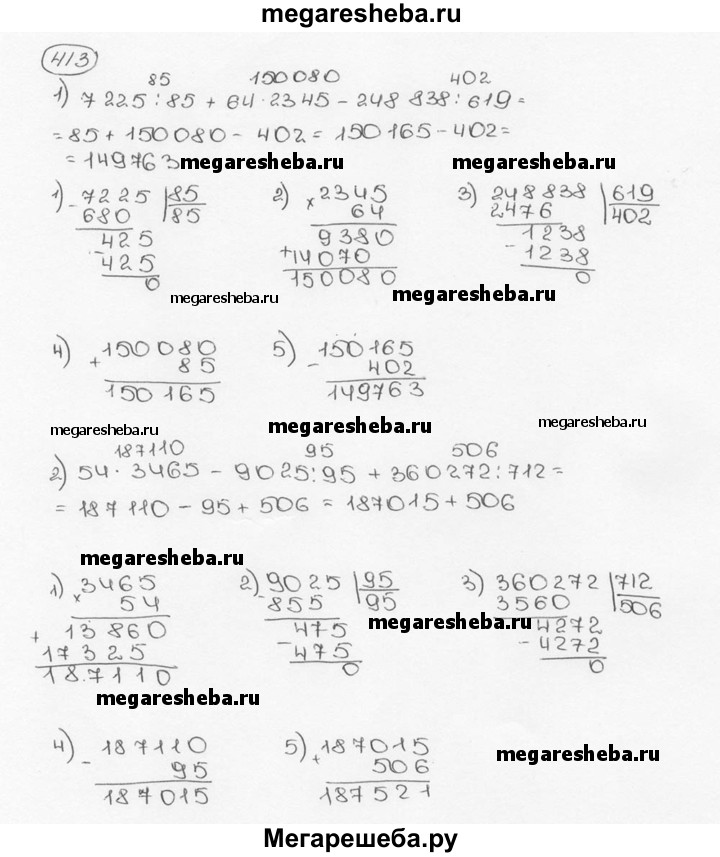 megaresheba.ru
413
85 150080 402
1) 7225:85 + 64·2345 - 248 838:619=
=85+150080- 402 = 150165-402=
=149763 megaresheba.ru megaresheba.ru
1) -7225 85 2) ×2345 3) 248838 619
680 85 64 2476 402
425 9380 1238
-425 +14070 -1238
0 150080 0
megaresheba.ru megaresheba.ru
4) +150080 5) -150165
85 402
150165 149763
megaresheba.ru megaresheba.ru megaresheba.ru
187110 95 506
2) 54·3465 - 9025:95 + 360272:712=
= 187110-95+506 = 187015+506
megaresheba.ru
1) ×3465 2) -9025 95 3) 360272 712
54 855 95 3560 506
+13860 475 megaresheba.ru 4272
17325 -475 -4272
18.7110 0 0
megaresheba.ru
4) -187110 5) +187015 megaresheba.ru
95 506
187015 187521
Мегарешеба.ру